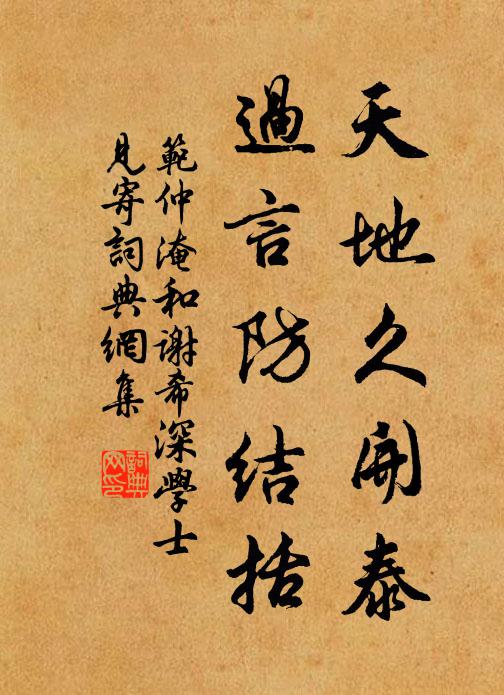 天地久開泰
過言防結括
範仲淹和谢希深學士
見寄詞典網集
詞典
网印